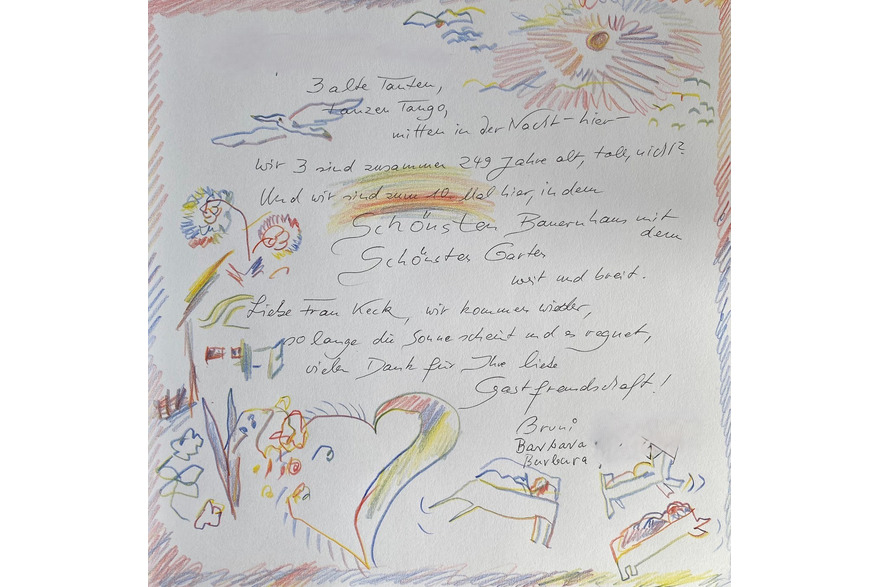 3 alte Tanten,
tanzen Tango,
mitten in der Nacht - hier -
Wir 3 sind zusammen 249 Jahre alt, toll, nicht?
Und wir sind zum 10. Mal hier, in dem
Schönsten Bauernhaus mit
dem
Schönsten Garten
weit und breit.
Liebe Frau Keck, wir kommen wieder,
so lange die Sonne scheint und es regnet,
vielen Dank für Ihre liebe
Gastfreundschaft!
Bruni
Barbara
Barbara